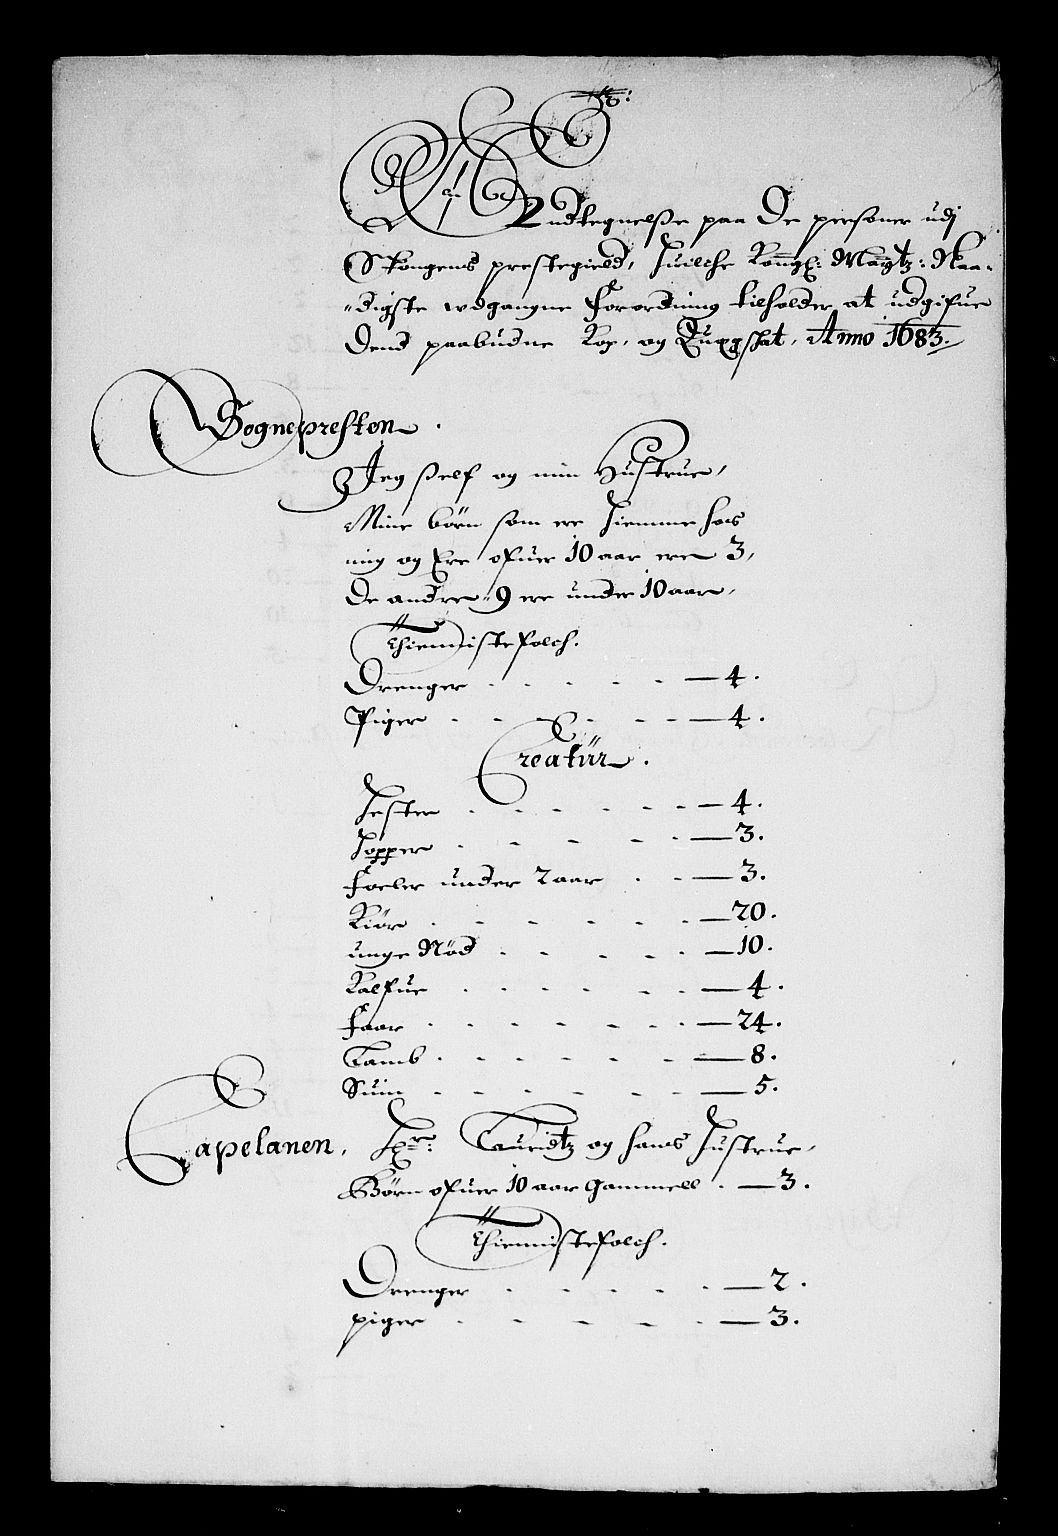 Andtegnelsse paa De personer udj
Skongens prestegield, huilche Kongl: Maytz: Naa-
digste udgangne Forordning tilholder at udgifue
dend paabudne Kop, og Quegskat, Anno 1683.
Sognepresten.
Jeg sself og min Hustrue,
Mine börn som ere hiemme hos
mig og Ere ofuer 10 aar ere 3,
De andre 9 ere under 10 aar,
Thiennistefolch.
Drenger - - - - - 4.
Piger - - - - - 4.
Creatür.
Hester - - - - - 4.
Hopper - - - - 3.
Foeler under 2 aar - - 3.
Kiör - - - - - 20.
unge Nöd - - - - 10.
Kalfue - - - - - 4.
Faar - - - - - 24.
Lamb - - - - - 8.
Suin - - - - - 5.
Capelanen, Hr: Lauridtz og hans Hustrue,
Börn ofuer 10 aar Gammell - 3.
Thiennistefolch.
Drenger - - - - 2.
piger - - - - - 3.